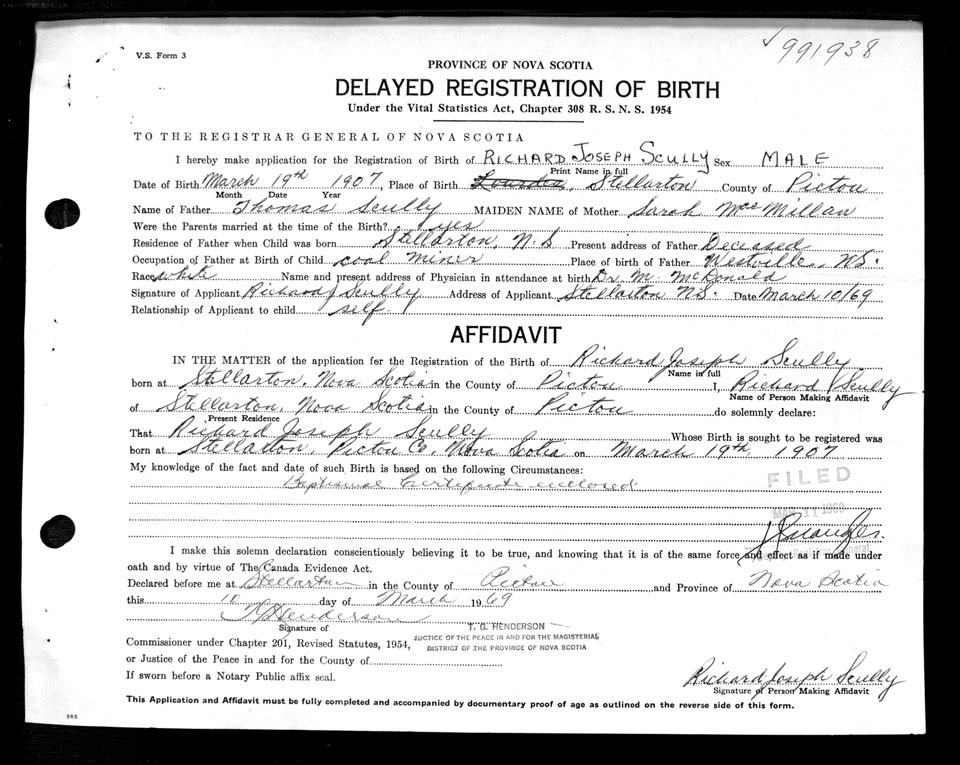 V.S. Form 3
✓991938
PROVINCE OF NOVA SCOTIA
DELAYED REGISTRATION OF BIRTH
Under the Vital Statistics Act, Chapter 308 R. S. N. S. 1954
TO THE REGISTRAR GENERAL OF NOVA SCOTIA
I hereby make application for the Registration of Birth of RICHARD JOSEPH SCULLY Sex MALE
Print Name in full
Date of Birth March 19th 1907, Place of Birth Lourdes, Stellarton County of Pictou
Month Date Year
Name of Father Thomas Scully MAIDEN NAME of Mother Sarah MacMillan
Were the Parents married at the time of the Birth? yes
Residence of Father when Child was born Stellarton, N.S Present address of Father Deceased
Occupation of Father at Birth of Child coal miner Place of birth of Father Westville, NS.
Race white Name and present address of Physician in attendance at birth Dr. M. McDonald
Signature of Applicant Richard J Scully Address of Applicant Stellarton N.S. Date March 10/69
Relationship of Applicant to child self.
AFFIDAVIT
IN THE MATTER of the application for the Registration of the Birth of Richard Joseph Scully
Name in full
born at Stellarton, Nova Scotia in the County of Pictou I, Richard J Scully
Name of Person Making Affidavit
of Stellarton, Nova Scotia in the County of Pictou do solemnly declare:
Present Residence
That Richard Joseph Scully Whose Birth is sought to be registered was
born at Stellarton, Pictou Co. Nova Scotia on March 19th 1907
My knowledge of the fact and date of such Birth is based on the following Circumstances:
Baptismal Certificate enclosed
FILED
MAR 11 1969
I make this solemn declaration conscientiously believing it to be true, and knowing that it is of the same force and effect as if made under
oath and by virtue of The Canada Evidence Act.
Declared before me at Stellarton in the County of Pictou and Province of Nova Scotia
this 10 day of March 1969
T G Henderson
Signature of
T. G. HENDERSON
Commissioner under Chapter 201, Revised Statutes, 1954,
JUSTICE OF THE PEACE IN AND FOR THE MAGISTERIAL
DISTRICT OF THE PROVINCE OF NOVA SCOTIA
or Justice of the Peace in and for the County of
If sworn before a Notary Public affix seal.
Richard Joseph Scully
Signature of Person Making Affidavit
This Application and Affidavit must be fully completed and accompanied by documentary proof of age as outlined on the reverse side of this form.
365